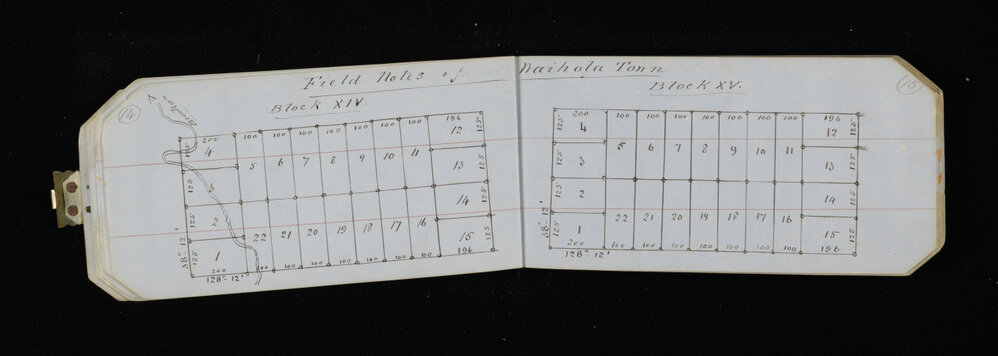 Field Notes of Waihola Town
14
Block XIV.
200 100 100 100 100 100 100 100 196
125 4 5 6 7 8 9 10 11 12 125
13 125
125 2 14 125
125 1 22 21 20 19 18 17 16 15 125
200 100 100 100 100 100 100 196
38° 12'
128° 12'
15
Block XV.
200 100 100 100 100 100 100 100 196
125 4 5 6 7 8 9 10 11 12 125
125 3 13 125
125 2 14 125
125 1 22 21 20 19 18 17 16 15 125
200 100 100 100 100 100 100 100 196
38° 12'
128° 12'